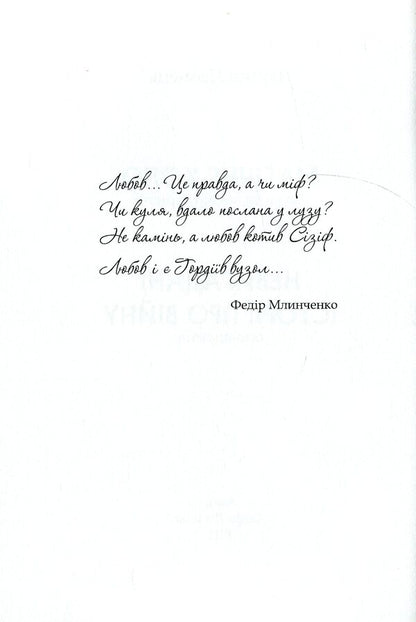 Любов... Це правда, а чи міф?
Чи куля, вдало послана у лузу?
Не камінь, а любов котив Сізіф.
Любов і є Гордіїв вузол...
Федір Млинченко